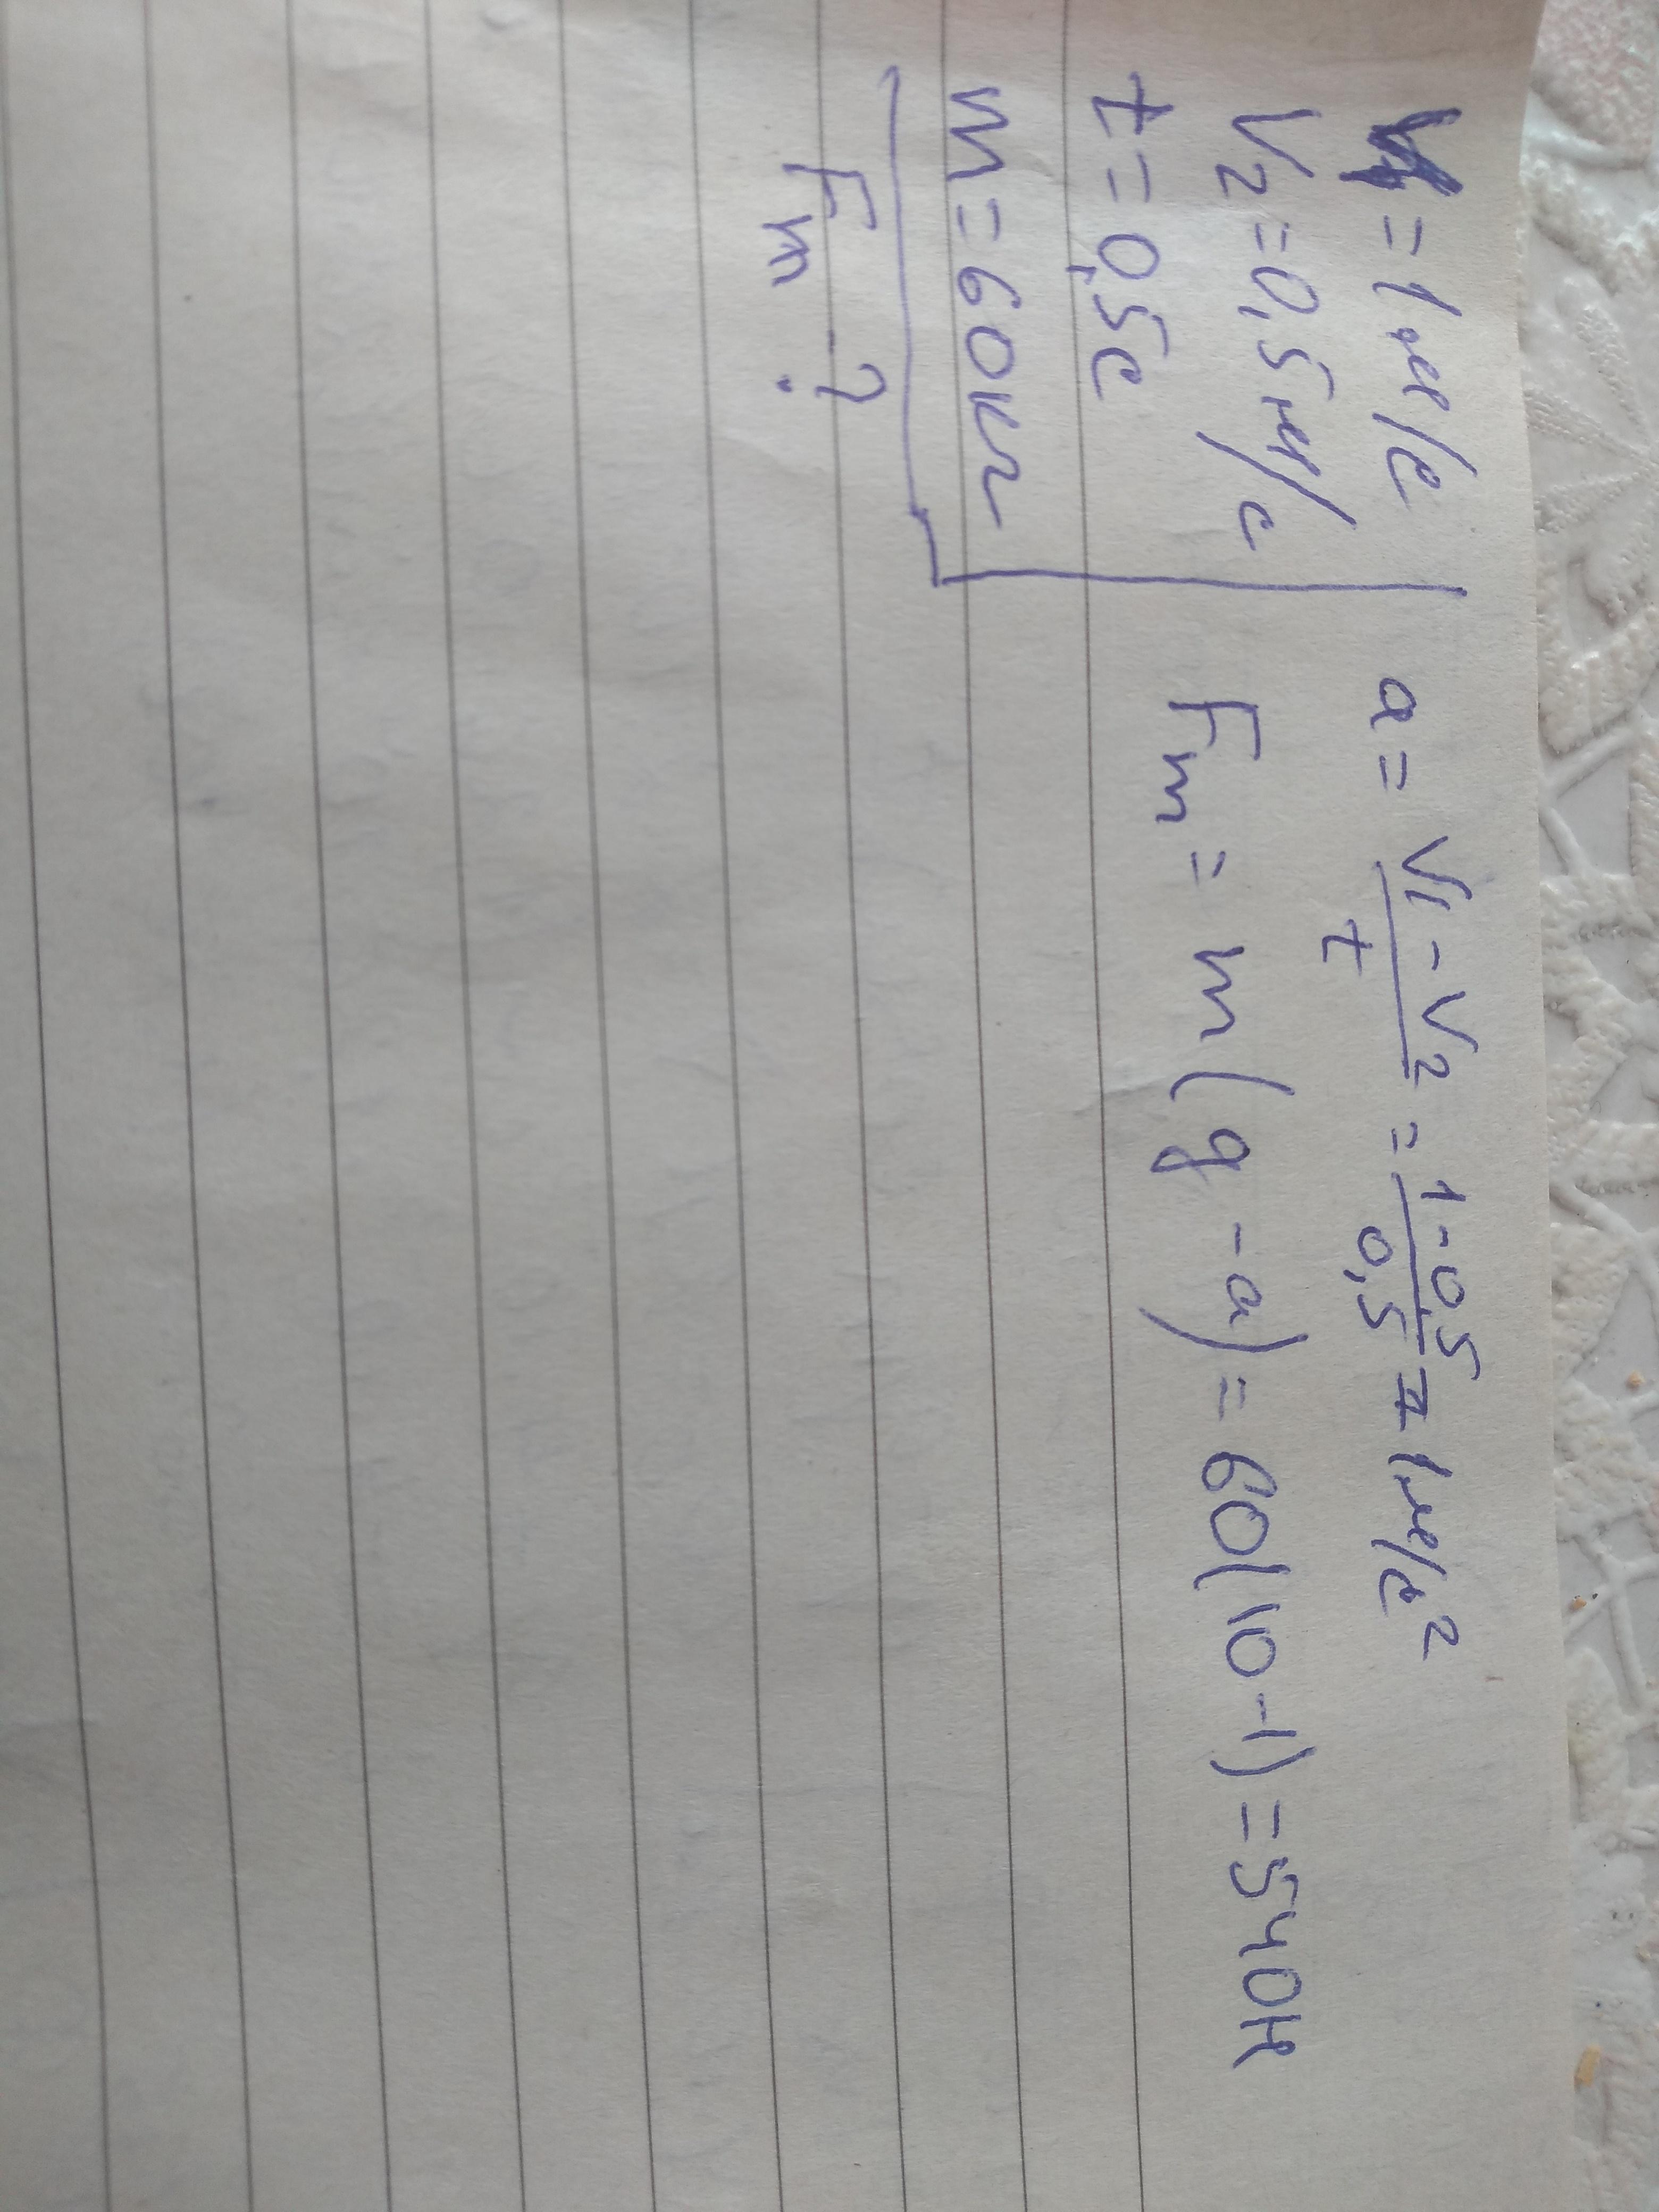 V₁ = 1 м/с
V₂ = 0,5 м/с
t = 0,5с
m = 60кг
Fт - ?
a = V₁ - V₂ / t = 1 - 0,5 / 0,5 = 1 м/с²
Fт = m(g - a) = 60(10 - 1) = 540н